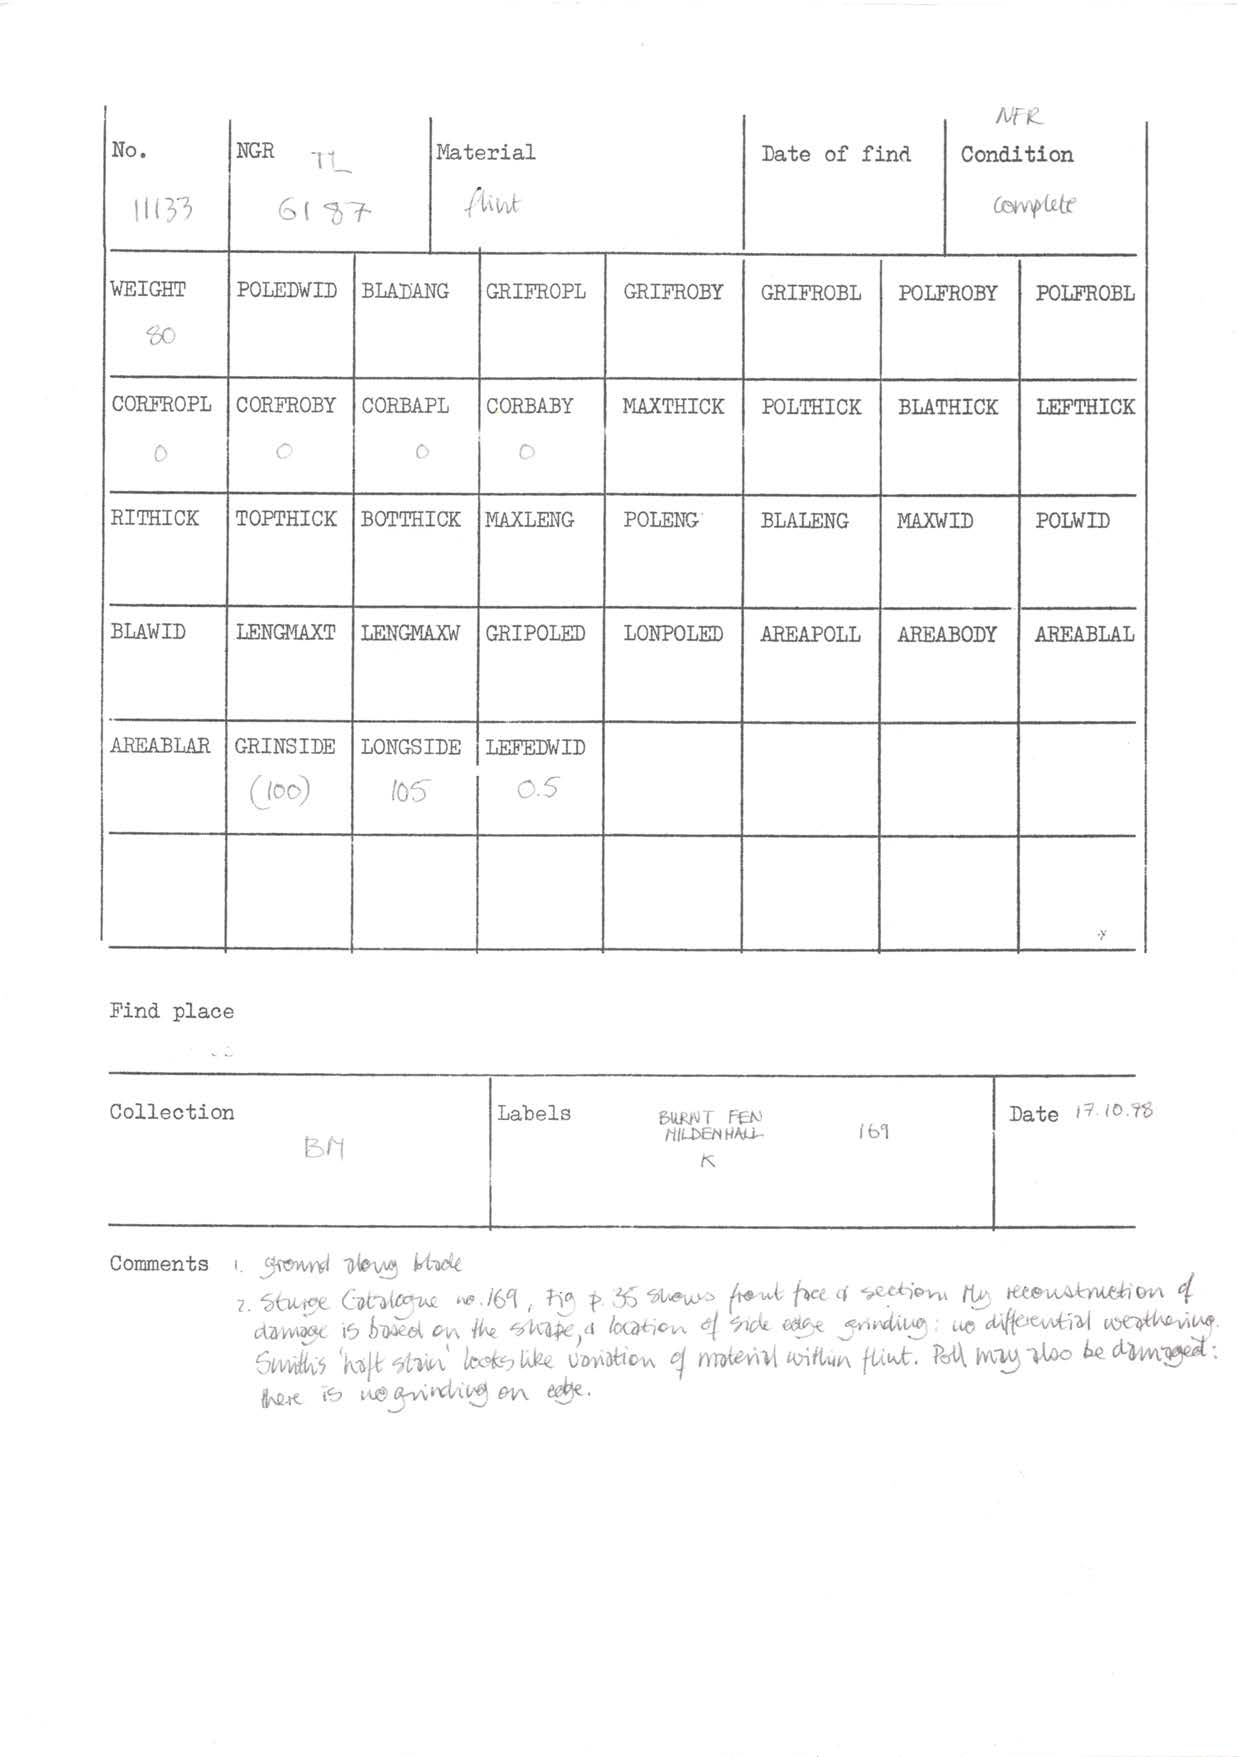 NFR
No. NGR TL Material Date of find Condition
11133 6187 flint complete
WEIGHT POLEDWID BLADANG GRIFROPL GRIFROBY GRIFROBL POLFROBY POLFROBL
80
CORFROPL CORFROBY CORBAPL CORBABY MAXTHICK POLTHICK BLATHICK LEFTHICK
0 0 0 0
RITHICK TOPTHICK BOTTHICK MAXLENG POLENG BLALENG MAXWID POLWID
BLAWID LENGMAXT LENGMAXW GRIPOLED LONPOLED AREAPOLL AREABODY AREABLAL
AREABLAR GRINSIDE LONGSIDE LEFEDWID
(100) 105 0.5
Find place
Collection Labels BURNT FEN Date 17.10.98
BM MILDENHALL 169
K
Comments 1. ground along blade
2. Sturge Catalogue no. 169, Fig p. 35 shows front face & section. My reconstruction of
damage is based on the shape, & location of side edge grinding: no differential weathering.
Smith's 'haft stain' looks like variation of material within flint. Poll may also be damaged:
there is no grinding on edge.